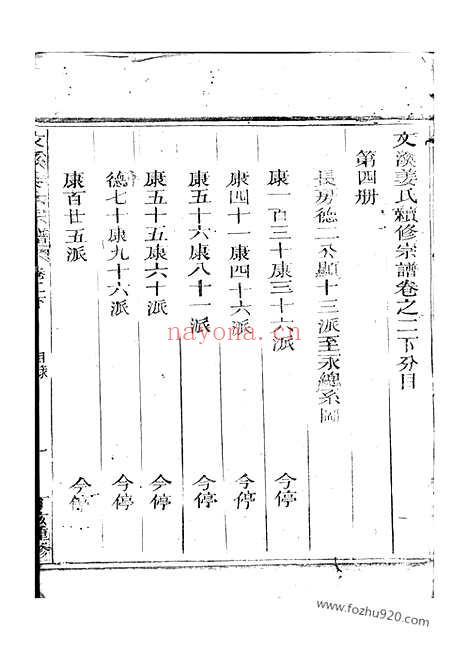 文溪姜氏續修宗譜卷之二下分目
第四册
長房德二公顯十三派至永總系圖
康一百三十康三十六派 今停
康四十一康四十六派 今停
康五十六康八十一派 今停
康五十五康六十派 今停
德七十康九十六派 今停
康百廿五派 今停
文溪姜氏宗譜 卷之二下 目錄 一 重修
nayona.cn
www.fozhu920.com